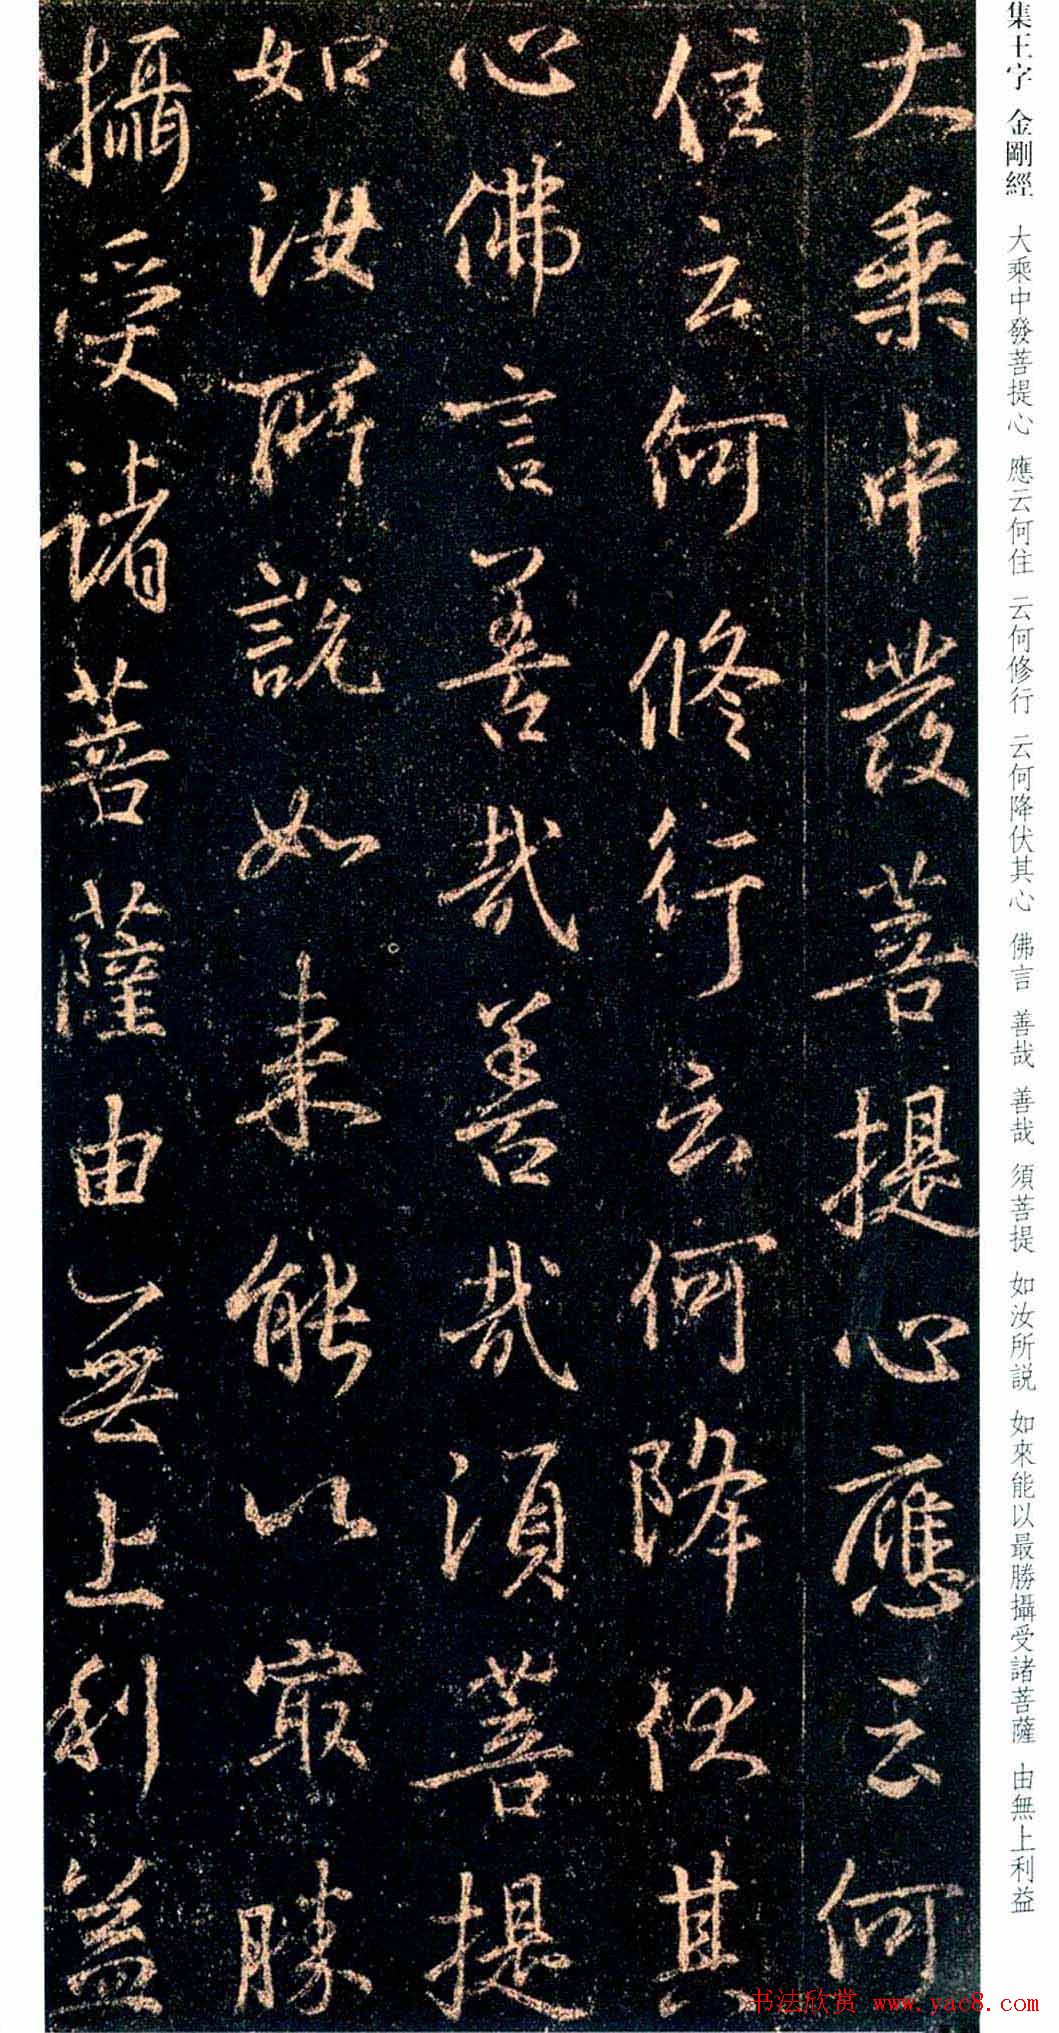 集王字 金剛經 大乘中發菩提心 應云何住 云何修行 云何降伏其心 佛言 善哉 善哉 須菩提 如汝所説 如來能以最勝攝受諸菩薩 由無上利益
大乘中發菩提心應云何
住云何修行云何降伏其
心佛言善哉善哉須菩提
如汝所說如来能以冣勝
攝受諸菩薩由無上利益
书法欣赏 www.yac8.com